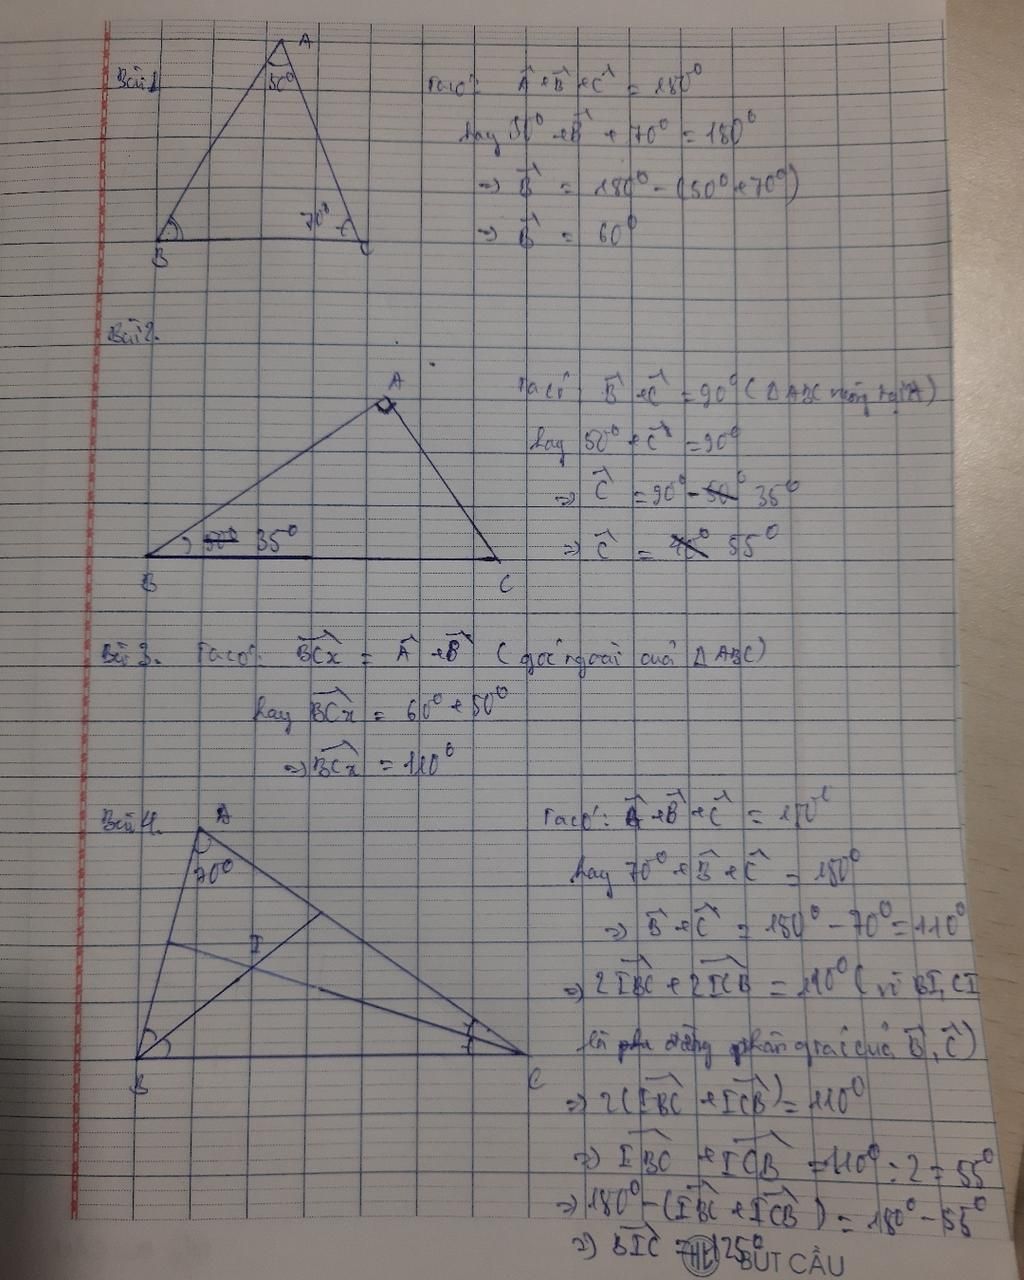 Bài 1
A
50°
70°
B
C
Ta có: Â + B̂ + Ĉ = 180°
hay 50° + B̂ + 70° = 180°
=> B̂ = 180° - (50° + 70°)
=> B̂ = 60°
Bài 2.
A
35°
B
C
Ta có: B̂ + Ĉ = 90° (Δ ABC vuông tại A)
hay 50° + Ĉ = 90°
=> Ĉ = 90° - 50° 35°
=> Ĉ = 40° 55°
Bài 3. Ta có: BCx = Â + B̂ (góc ngoài của Δ ABC)
hay BCx = 60° + 50°
=> BCx = 110°
Bài 4.
A
70°
I
B
C
Ta có: Â + B̂ + Ĉ = 180°
hay 70° + B̂ + Ĉ = 180°
=> B̂ + Ĉ = 180° - 70° = 110°
=> 2IBC + 2ICB = 110° (vì BI, CI
là đường phân giác của B̂, Ĉ)
=> 2(IBC + ICB) = 110°
=> IBC + ICB = 110° : 2 = 55°
=> 180° - (IBC + ICB) = 180° - 55°
=> BIC = 125°
HL BÚT CẦU